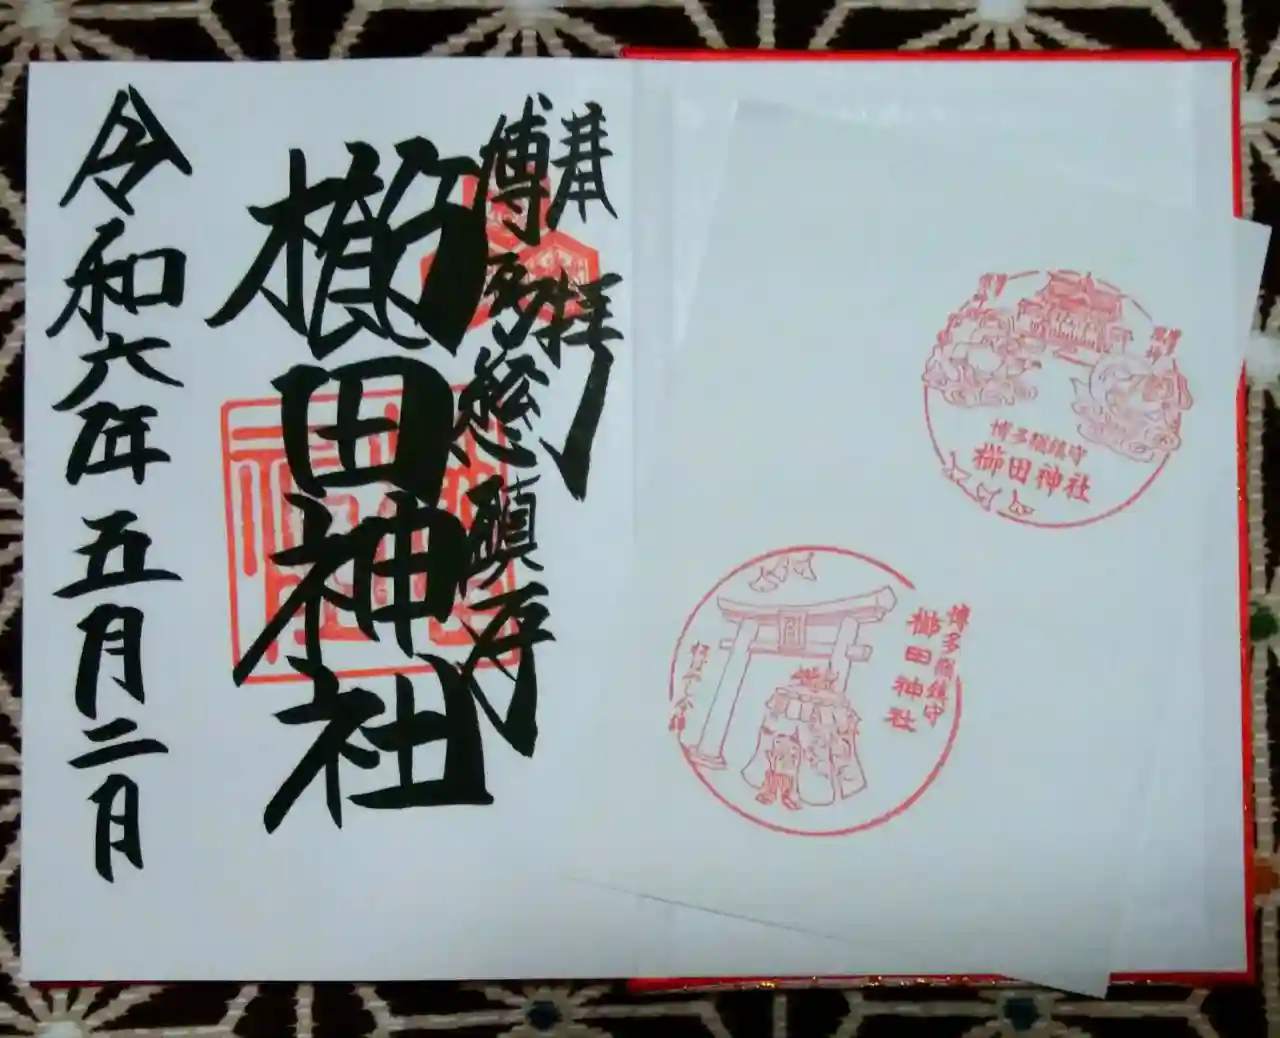 奉拝
博多総鎮守
櫛田神社
令和六年五月二日
博多総鎮守
櫛田神社
博多総鎮守
櫛田神社